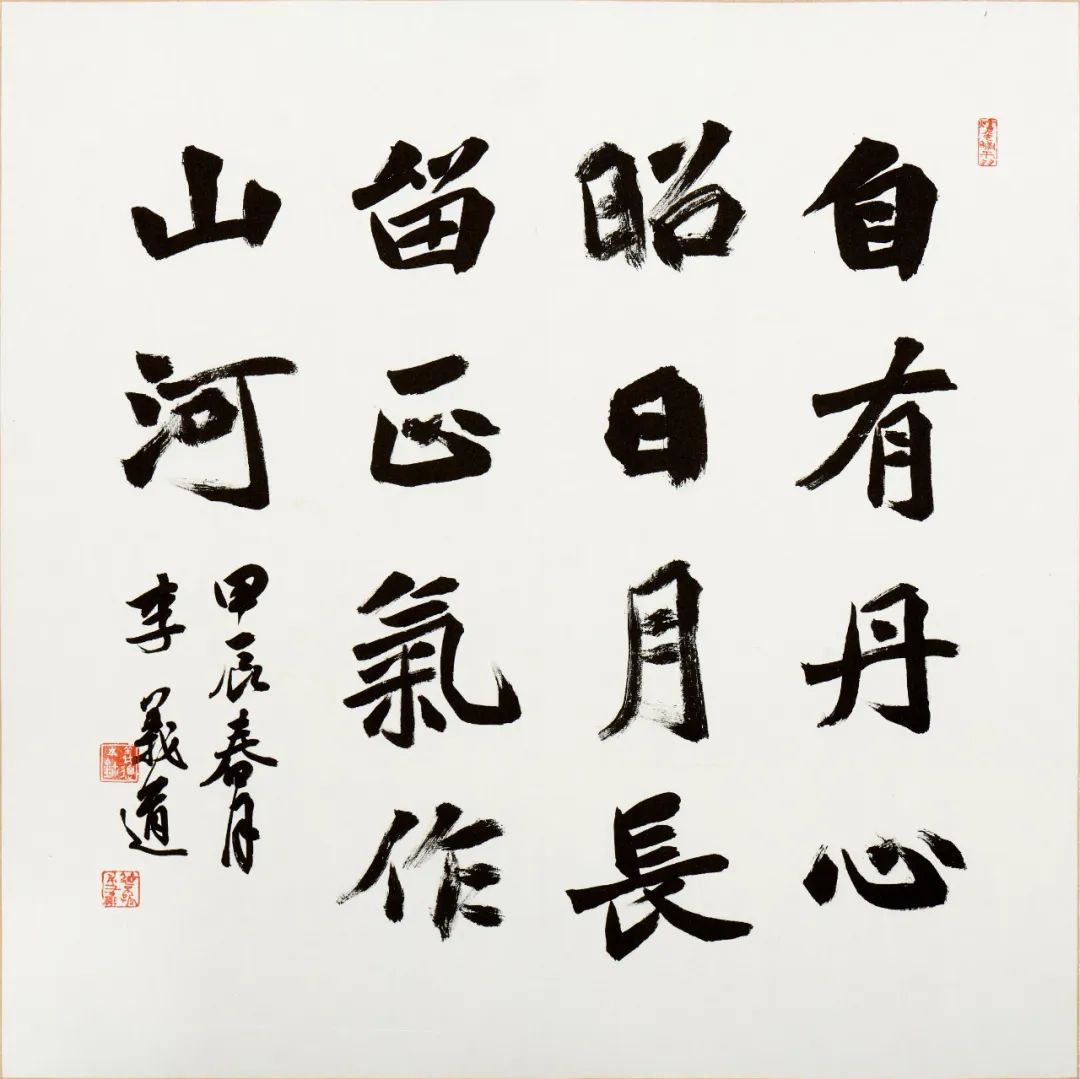 自有丹心
昭日月長
留正氣作
山河
甲辰春月
李義道